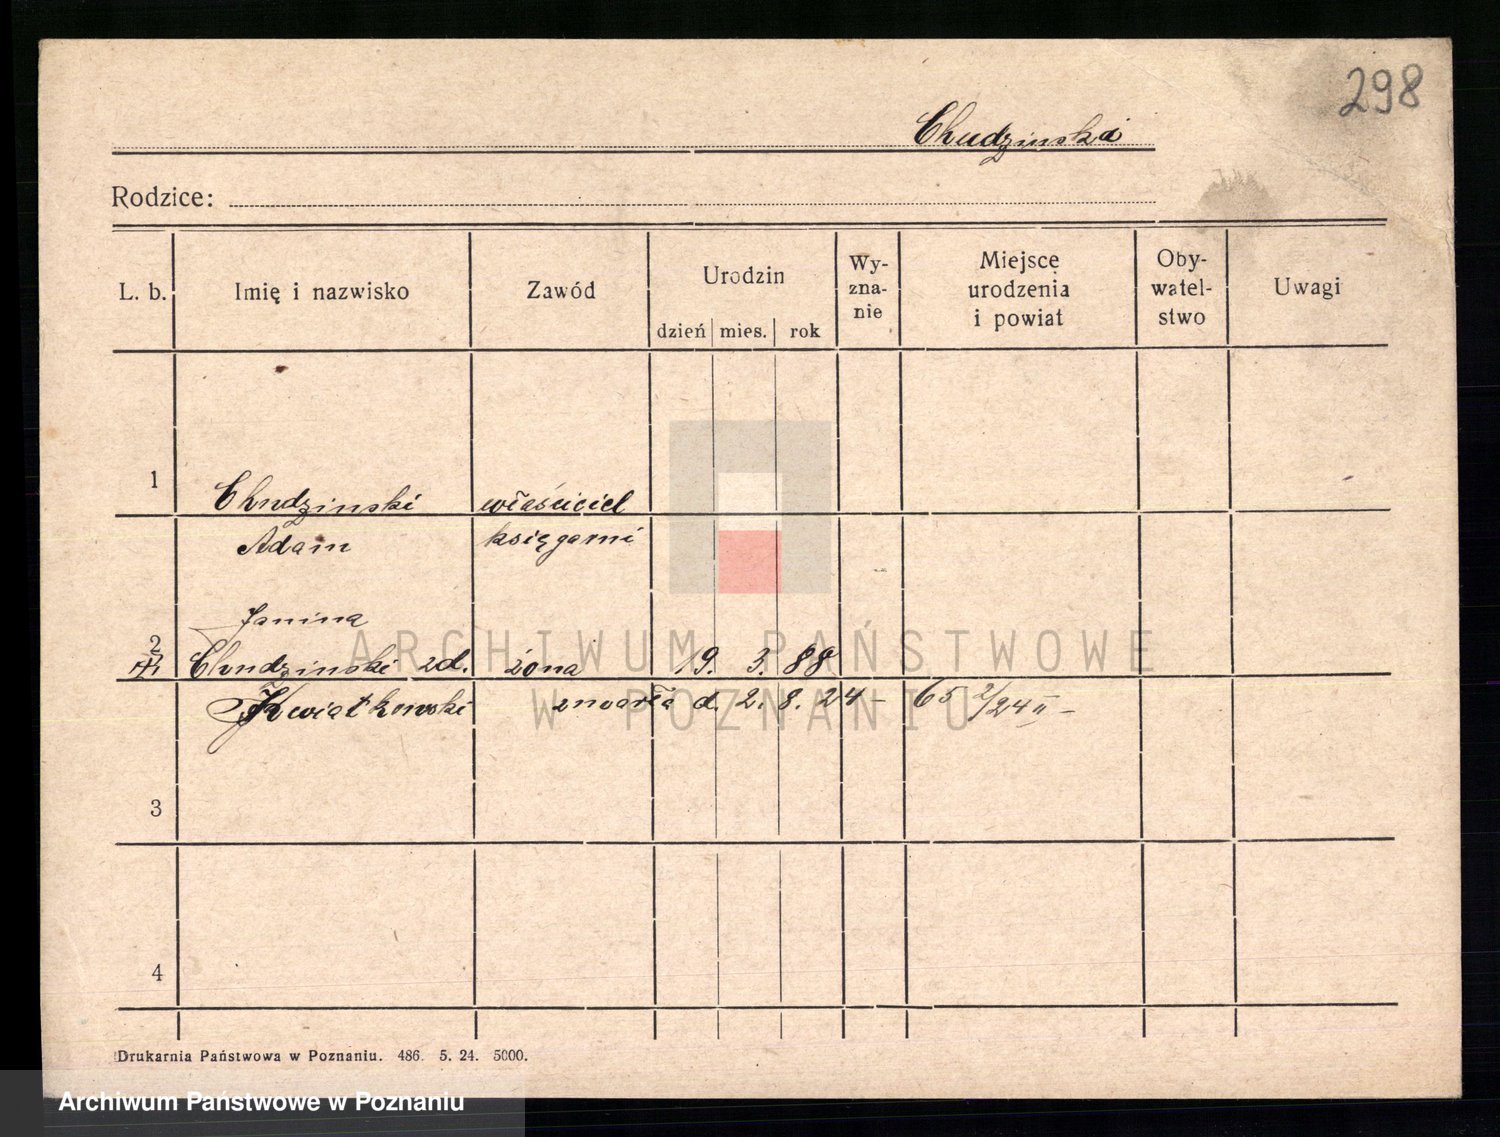 298
Chudzinski
Rodzice:
L. b. Imię i nazwisko Zawód Urodzin Wy- Miejsce Oby- Uwagi
zna- urodzenia watel-
nie i powiat stwo
dzień mies. rok
1 Chudzinski właściciel
Adam księgarni
Janina
2 Chudzinski zd. żona 19. 3. 88
Kwiatkowski zmarła d. 2. 8. 24 – 65 2/24 II –
3
4
ARCHIWUM PAŃSTWOWE
W POZNANIU
Drukarnia Państwowa w Poznaniu. 486. 5. 24. 5000.
Archiwum Państwowe w Poznaniu